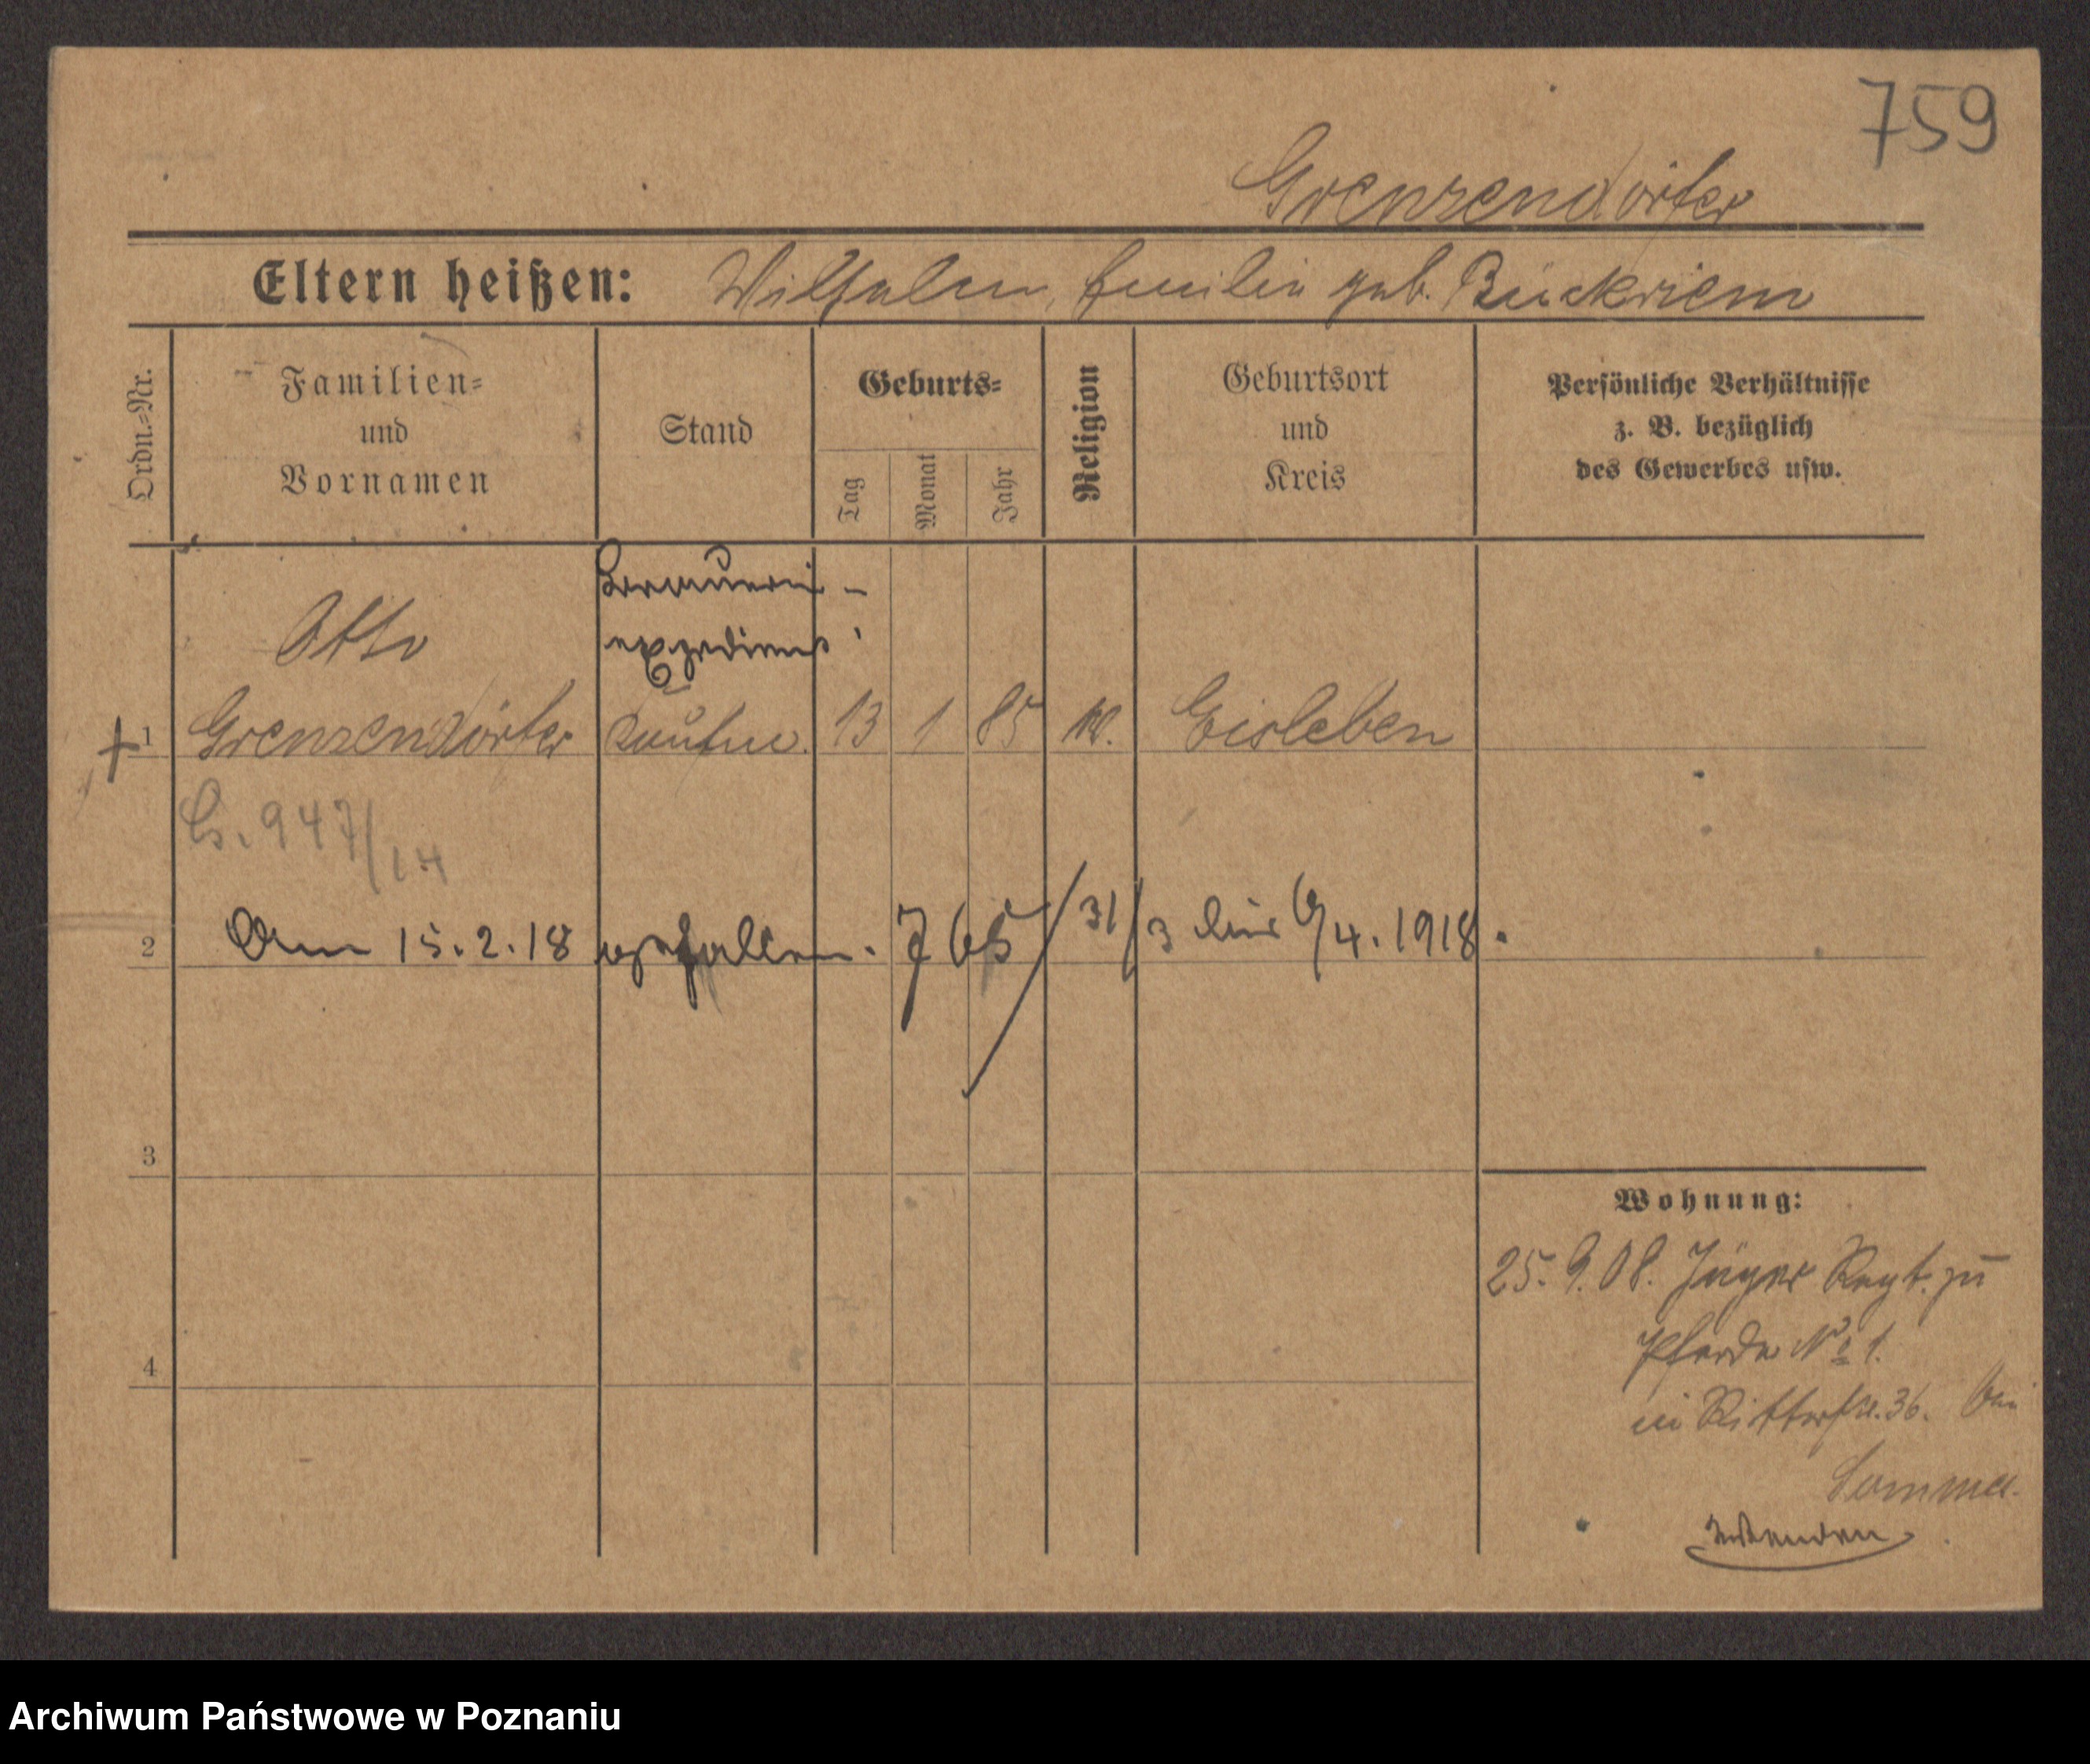 759
Grenzendörfer
Eltern heißen: Wilhelm, Emilie geb. Bückriem
Ordn.=Nr.
Familien=
und
Vornamen
Stand
Geburts=
Tag
Monat
Jahr
Religion
Geburtsort
und
Kreis
Persönliche Verhältnisse
z. B. bezüglich
des Gewerbes usw.
Brauerei-
expedient
Otto
1 Grenzendörfer Kaufm. 13 1 85 Eisleben
947/14
2 Am 15.2.18 gefallen. 765/31/3 6/4.1918.
3
Wohnung:
25.9.08. Jäger Regt. zu
Pferde № 1.
in Ritterstr. 36. bei
4
Archiwum Państwowe w Poznaniu